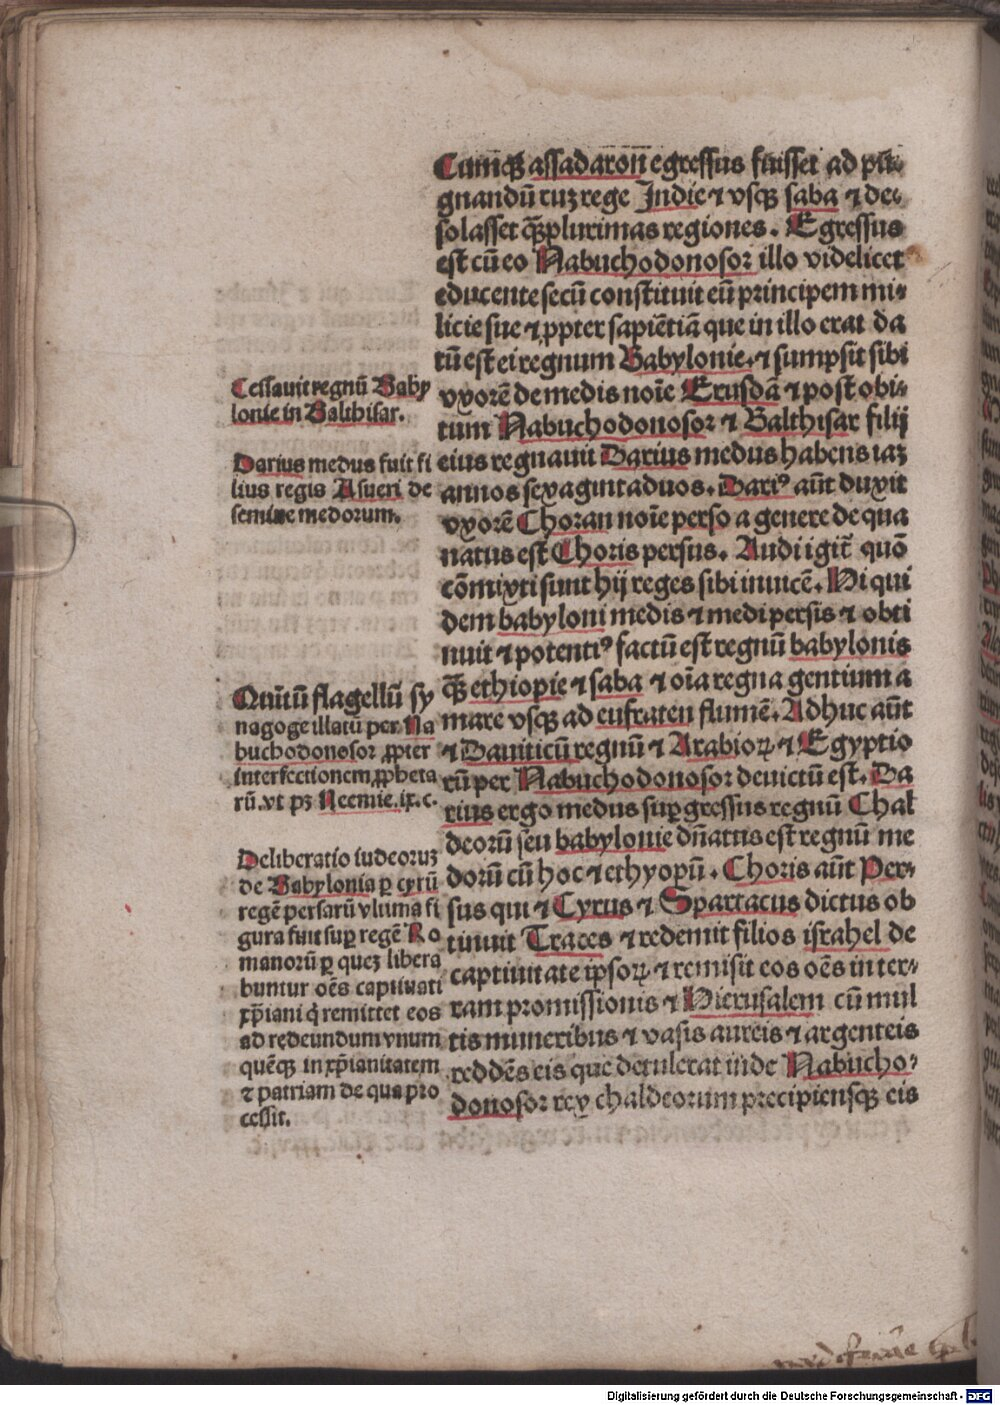 Cumq̄ʒ assadaron̄ egressus fuisset ad pū-
gnandū cuʒ rege Indie ⁊ vsqʒ saba ⁊ de-
solasset q̄ʒplurimas regiones. Egressus
est cū eo Nabuchodonosor illo videlicet
educente secū constituit eū principem mi-
licie sue ⁊ ꝓpter sapiētiā que in illo erat da
tū est ei regnum Babylonie. ⁊ sumpsit sibi
vxorē de medis noīe Erusdā ⁊ post obi-
tum Nabuchodonosor ⁊ Balthisar filij
eius regnauit Darius medus habens iaʒ
annos sexagintaduos. Dariꝰ aūt duxit
vxorē Choran noīe perso a genere de qua
natus est Choris persus. Audi igit̄ quō
cōmixti sunt hij reges sibi inuicē. Hi qui
dem babyloni medis ⁊ medi persis ⁊ obti
nuit ⁊ potentiꝰ factū est regnū babylonis
q̄ʒ ethiopie ⁊ saba ⁊ oīa regna gentium a
mare vsqʒ ad eufraten flumē. Adhuc aūt
⁊ Daniticū regnū ⁊ Arabioꝝ ⁊ Egyptio
rū per Nabuchodonosor deuictū est. Da
rius ergo medus suꝑgressus regnū Chal
deorū seu babylonie dn̄atus est regnū me
dorū cū hoc ⁊ ethyopū. Choris aūt Per-
sus qui ⁊ Cyrus ⁊ Spartacus dictus ob
tinuit Traces ⁊ redemit filios israhel de
captiuitate ipsoꝝ ⁊ remisit eos oēs in ter-
ram promissionis ⁊ Hierusalem cū mul
tis muneribus ⁊ vasis aureis ⁊ argenteis
reddēs eis que detulerat inde Nabucho-
donosor rex chaldeorum precipiensqʒ eis
Cessauit regnū Baby
lonie in Balthisar.
Darius medus fuit fi
lius regis Asueri de
semine medorum.
Quītū flagellū sy
nagoge illatū per Na
buchodonosor ꝓpter
interfectionem ꝓpheta
rū. vt pʒ Neemie. ix. c.
Deliberatio iudeoruʒ
de Babylonia ꝑ cyrū
regē persarū vltima fi
gura fuit suꝑ regē Ro
manorū ꝑ queʒ libera
buntur oēs captiuati
xp̄iani q̇ remittet eos
ad redeundum vnum
quēqʒ in xp̄ianitatem
⁊ patriam de qua pro
cessit.
Digitalisierung gefördert durch die Deutsche Forschungsgemeinschaft - DFG